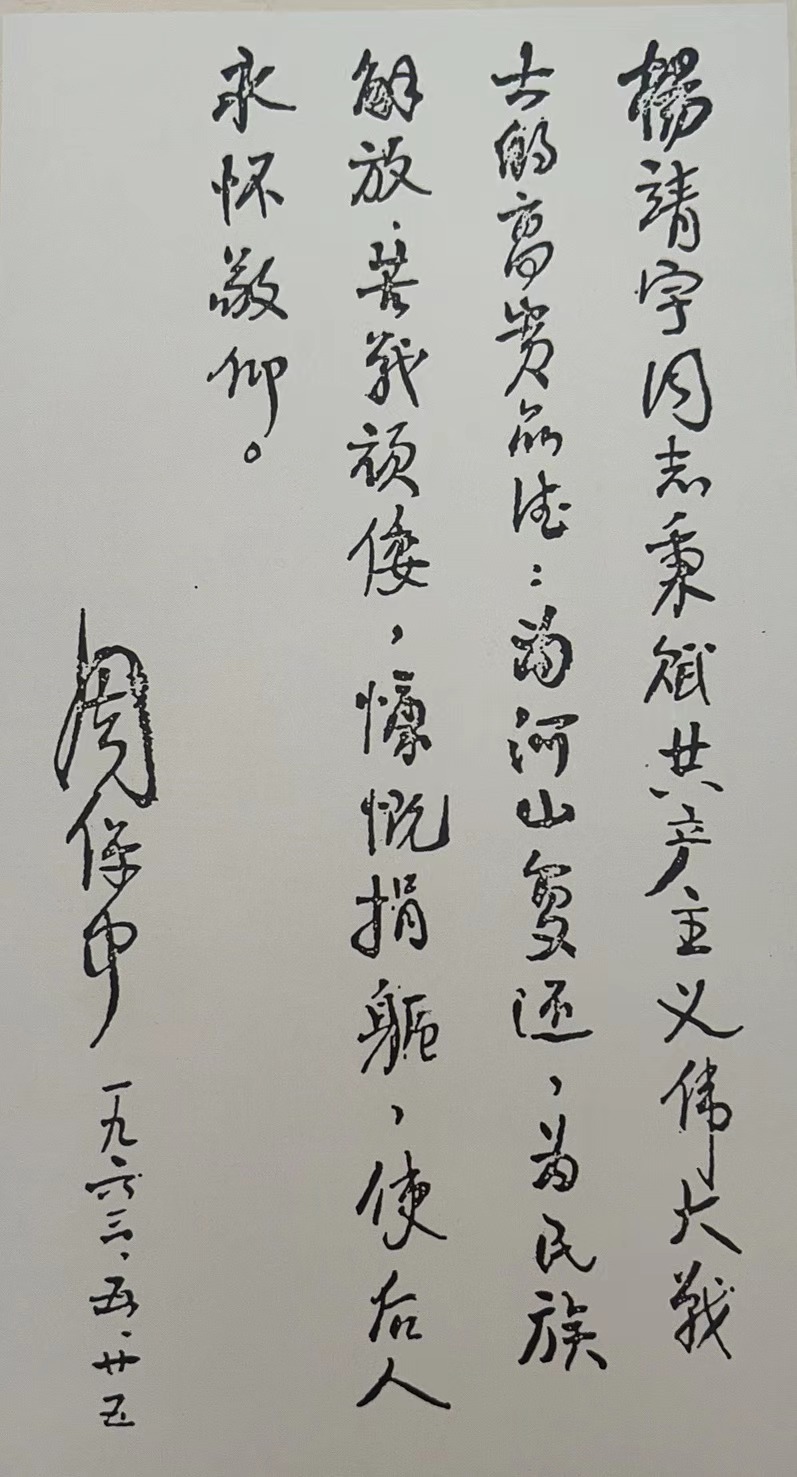 楊靖宇同志秉赋共产主义伟大战
士的高贵品德：为河山复还，为民族
解放，苦战顽倭，慷慨捐躯，使后人
永怀敬仰。
周保中
一九六三、五、廿五